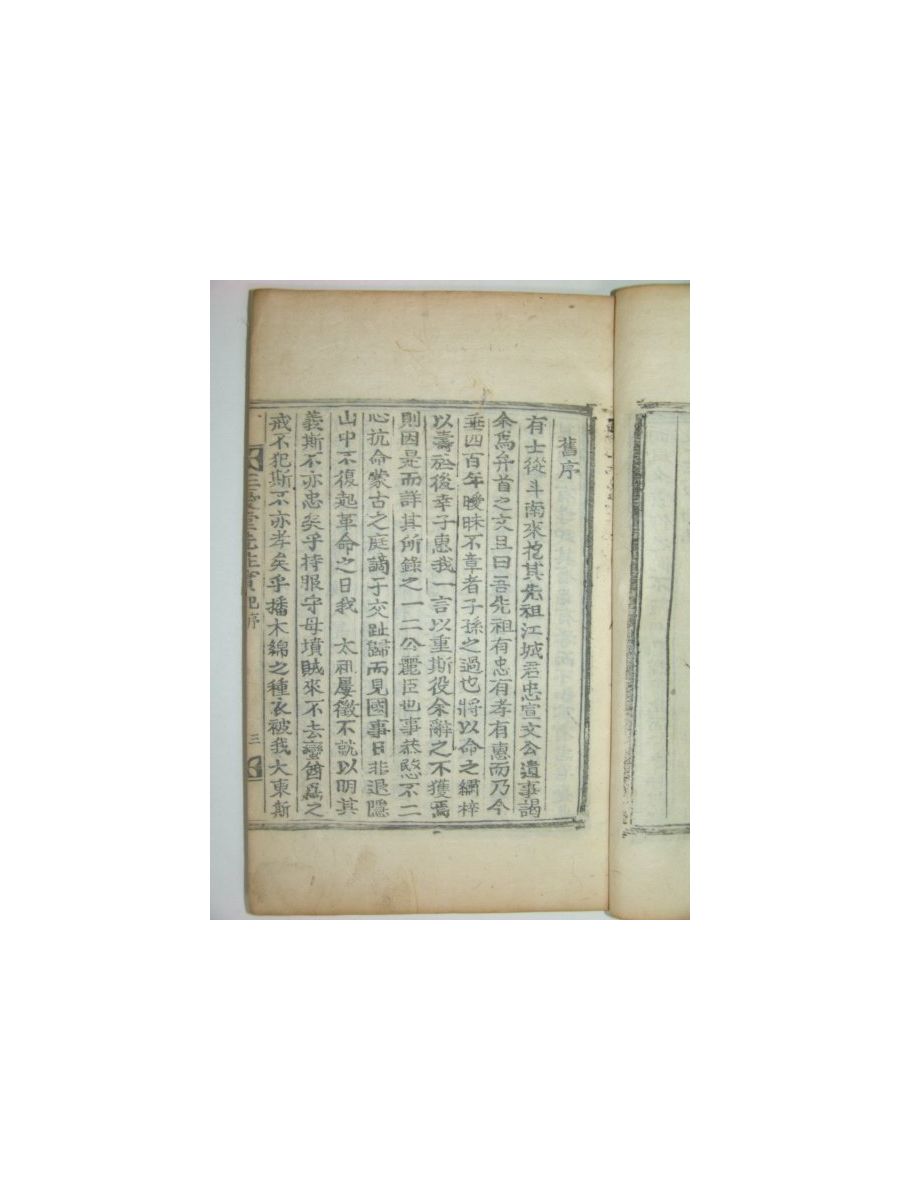 舊序
有士從斗南來抱其先祖江城君忠宣文公遺事謁
余爲弁首之文且曰吾先祖有忠有孝有惠而乃今
垂四百年曖昧不章者子孫之過也將以命之繡梓
以壽祗後幸子惠我一言以重斯役余辭之不獲焉
則因是而詳其所錄之一二公麗臣也事恭愍不二
心抗命蒙古之庭謫于交趾歸而見國事日非退隱
山中不復起革命之日我 太祖屢徵不就以明其
義斯不亦忠矣乎持服守母墳賊來不去蠻酋爲之
戒不犯斯不亦孝矣乎播木綿之種衣被我大東斯
三憂堂先生實記序 三